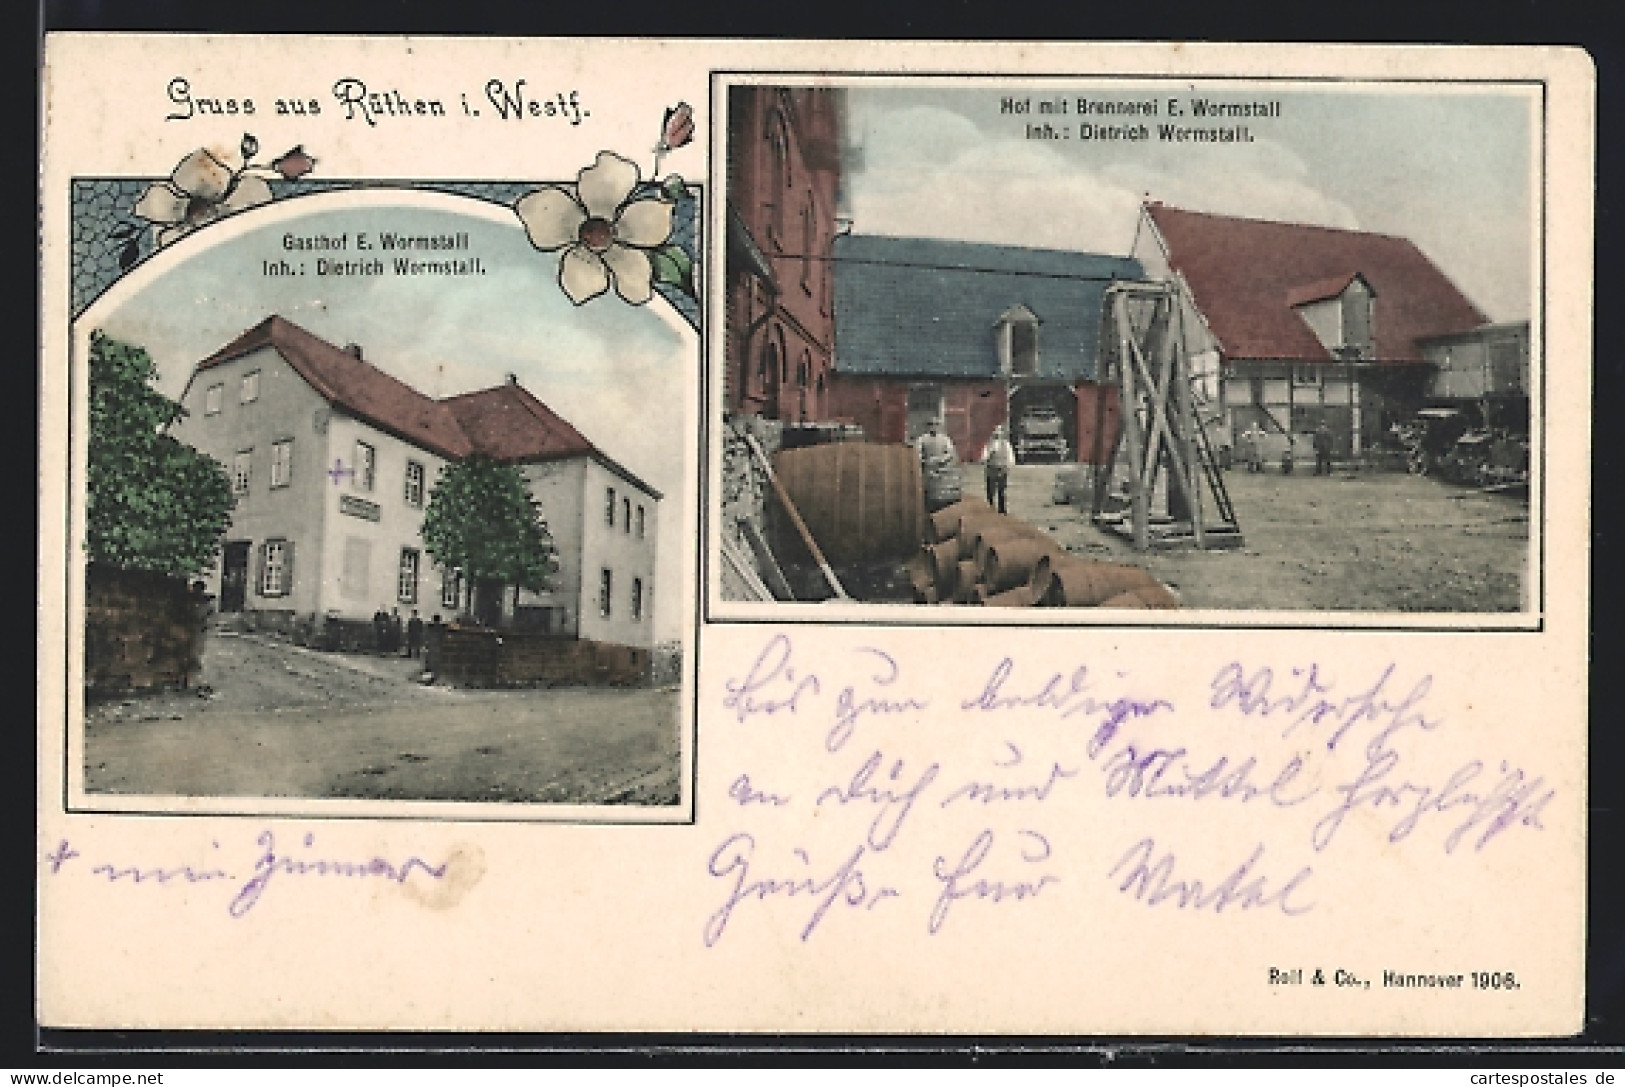 Gruss aus Rüthen i. Westf.
Gasthof E. Wormstall
Inh.: Dietrich Wormstall.
Hof mit Brennerei E. Wormstall
Inh.: Dietrich Wormstall.
Bis zum baldigen Widersehn
an Dich und Muttel herzlichste
Grüße Euer Vatel
+ mein Zimmer
Rolf & Co., Hannover 1906.
cartespostales de
www.delcampe.net